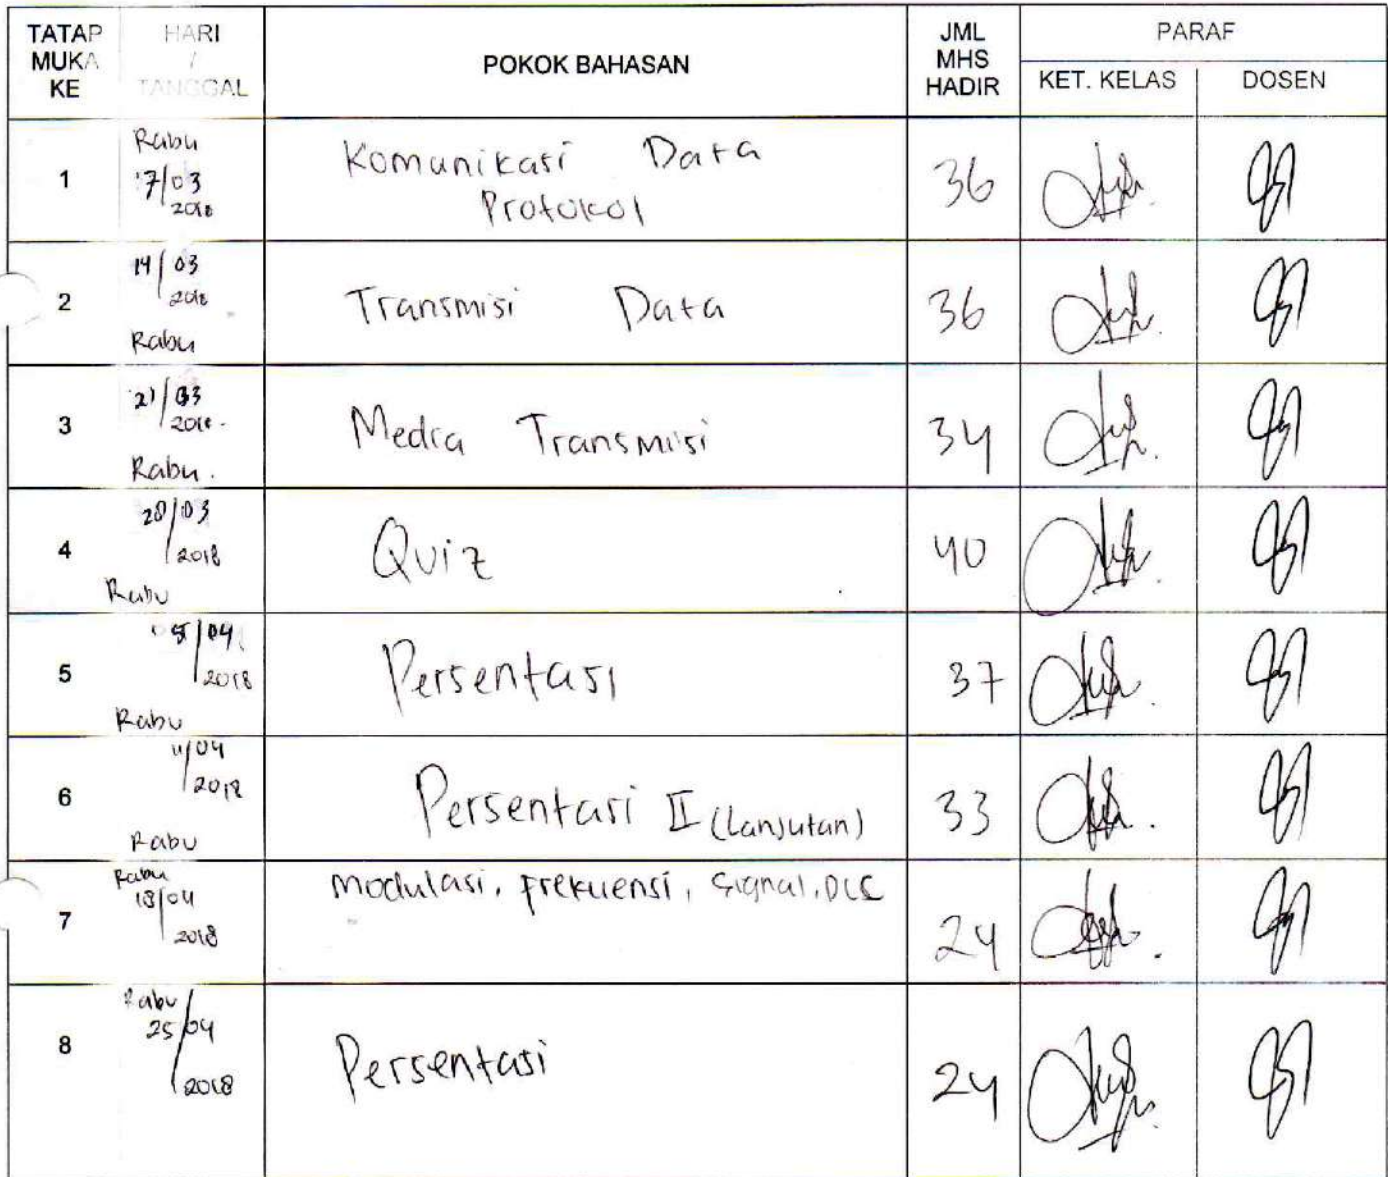 TATAP MUKA KE HARI / TANGGAL POKOK BAHASAN JML MHS HADIR PARAF
KET. KELAS DOSEN
1 Rabu 7/03 2018 Komunikasi Data Protokol 36
2 14/03 2018 Rabu Transmisi Data 36
3 21/03 2018. Rabu. Media Transmisi 34
4 28/03 2018 Rabu Quiz 40
5 04/2018 Rabu Persentasi 37
6 11/04 2018 Rabu Persentasi II (Lanjutan) 33
7 Rabu 18/04 2018 modulasi, frekuensi, signal, DLC 24
8 Rabu 25/04 2018 Persentasi 24